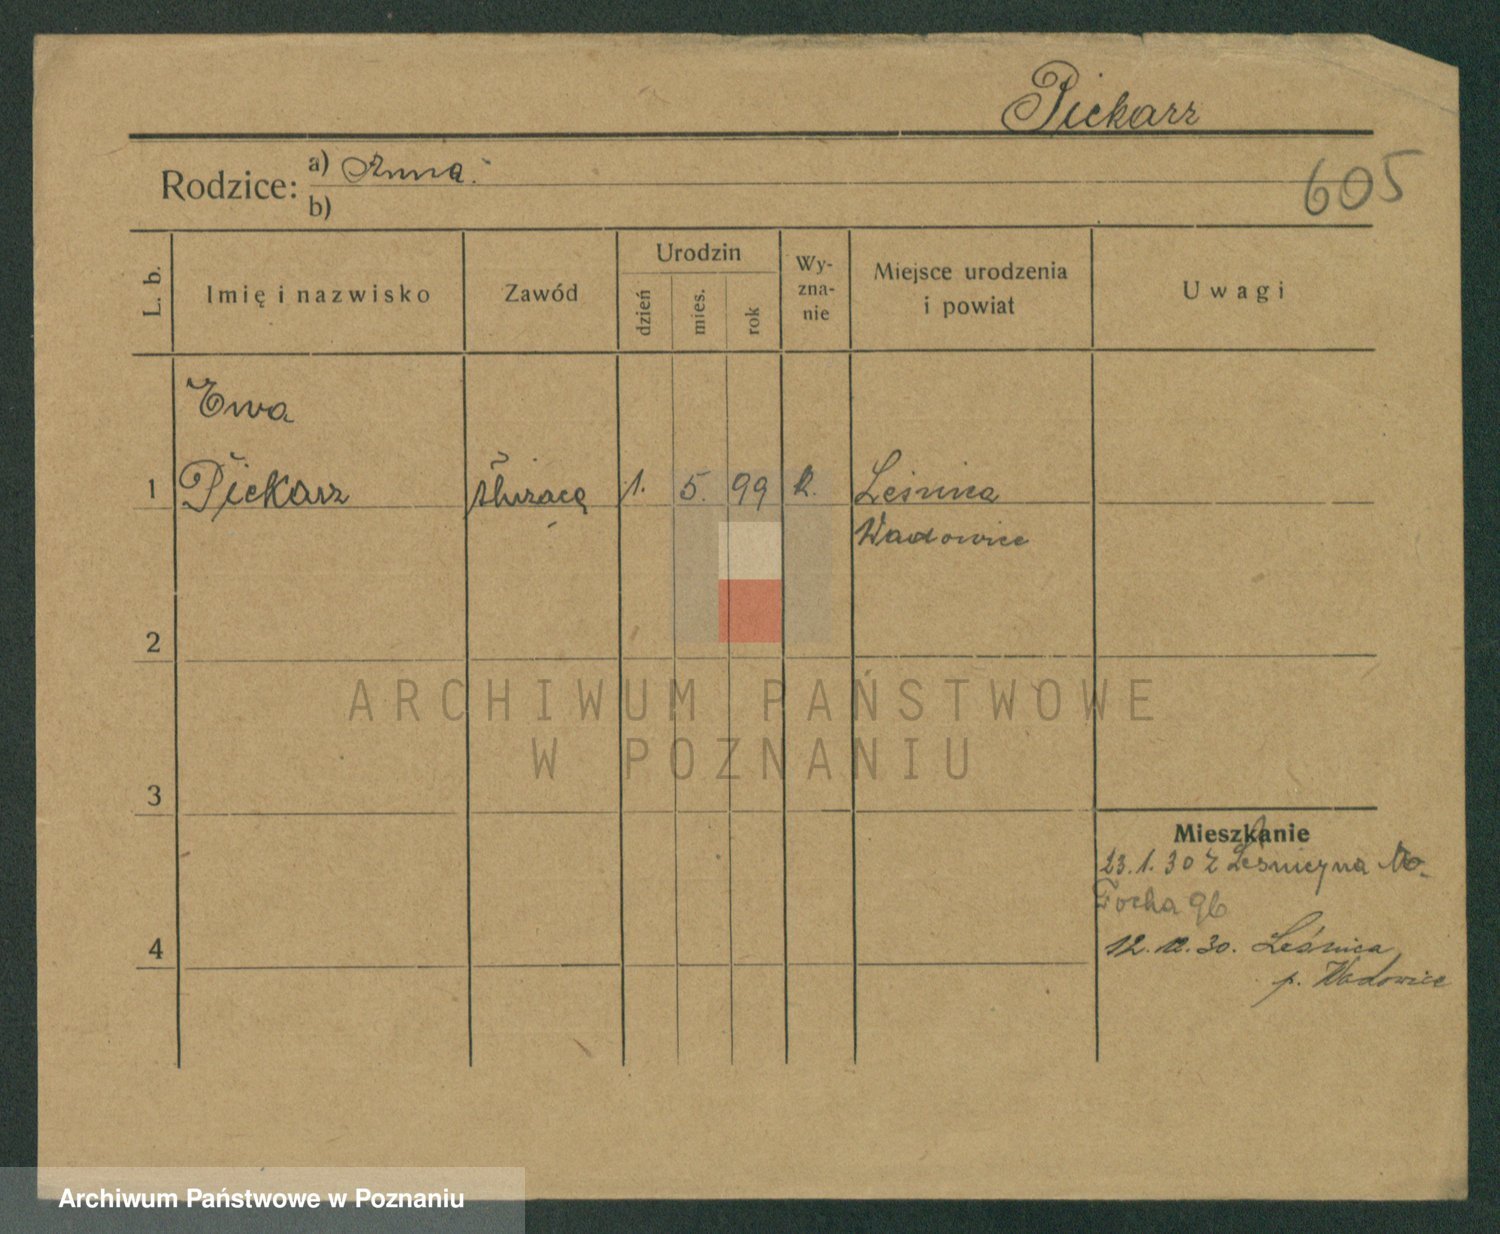 Piekarz
Rodzice: a) Anna
b)
605
L. b.
Imię i nazwisko
Zawód
Urodzin
dzień
mies.
rok
Wy-
zna-
nie
Miejsce urodzenia
i powiat
Uwagi
Ewa
1 Piekarz służącą 1. 5. 99 k. Leśnica
Wadowice
2
3
4
Mieszkanie
23.1.30 z
Focha 96
12.12.30. Leśnica
p. Wadowice
ARCHIWUM PAŃSTWOWE
W POZNANIU
Archiwum Państwowe w Poznaniu